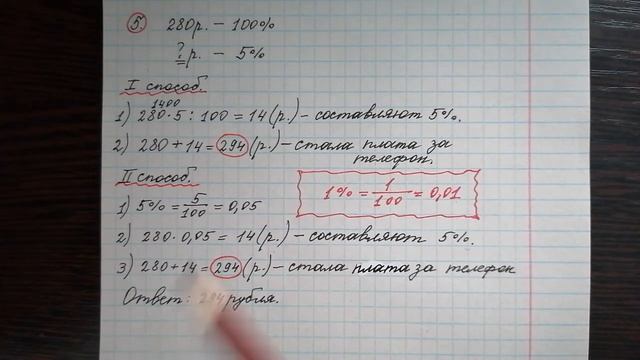 5. 280р. – 100%
? р. – 5%
I способ.
1400
1) 280·5:100=14(р.) – составляют 5%.
2) 280+14=294(р.) – стала плата за
телефон.
II способ.
1% = 1/100 = 0,01
1) 5% = 5/100 = 0,05
2) 280·0,05=14(р.) – составляют 5%.
3) 280+14=294(р.) – стала плата за телефон
Ответ: 294 рубля.